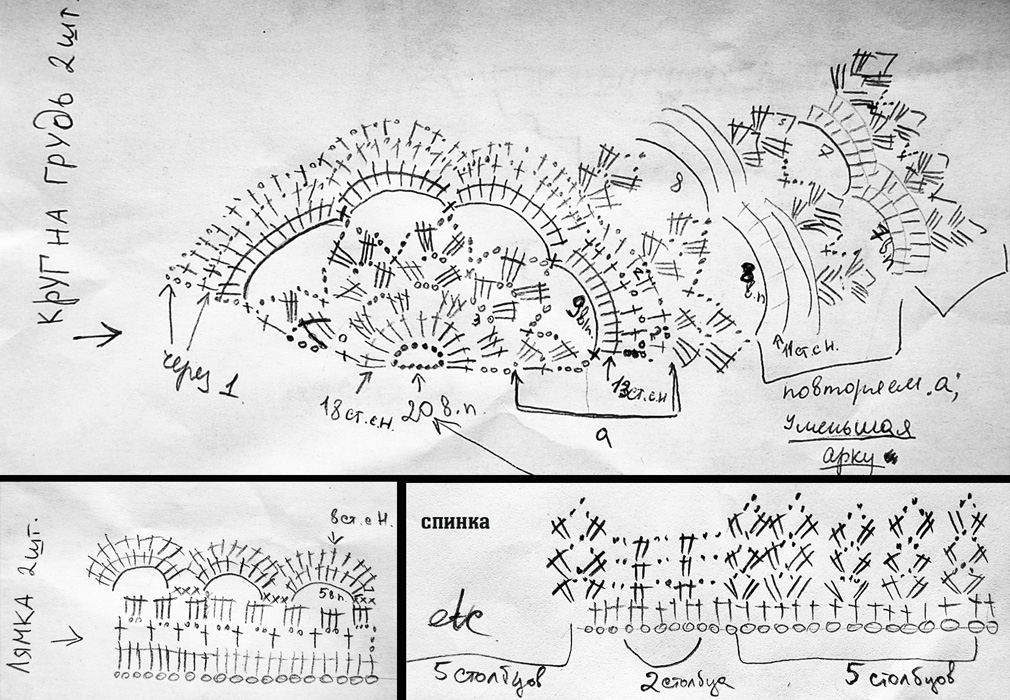 КРУГ НА ГРУДЬ 2 шт.
через 1
18 ст.с.н.
20 в.п.
3
9 вп.
13 ст.с.н
2
2
а
8
8 в.п
11 ст.с.н.
5
7
повторяем "а",
уменьшая
арку
ЛЯМКА 2 шт.
8 ст.с.н.
5 в п
спинка
etc
5 столбцов
2 столбца
5 столбцов